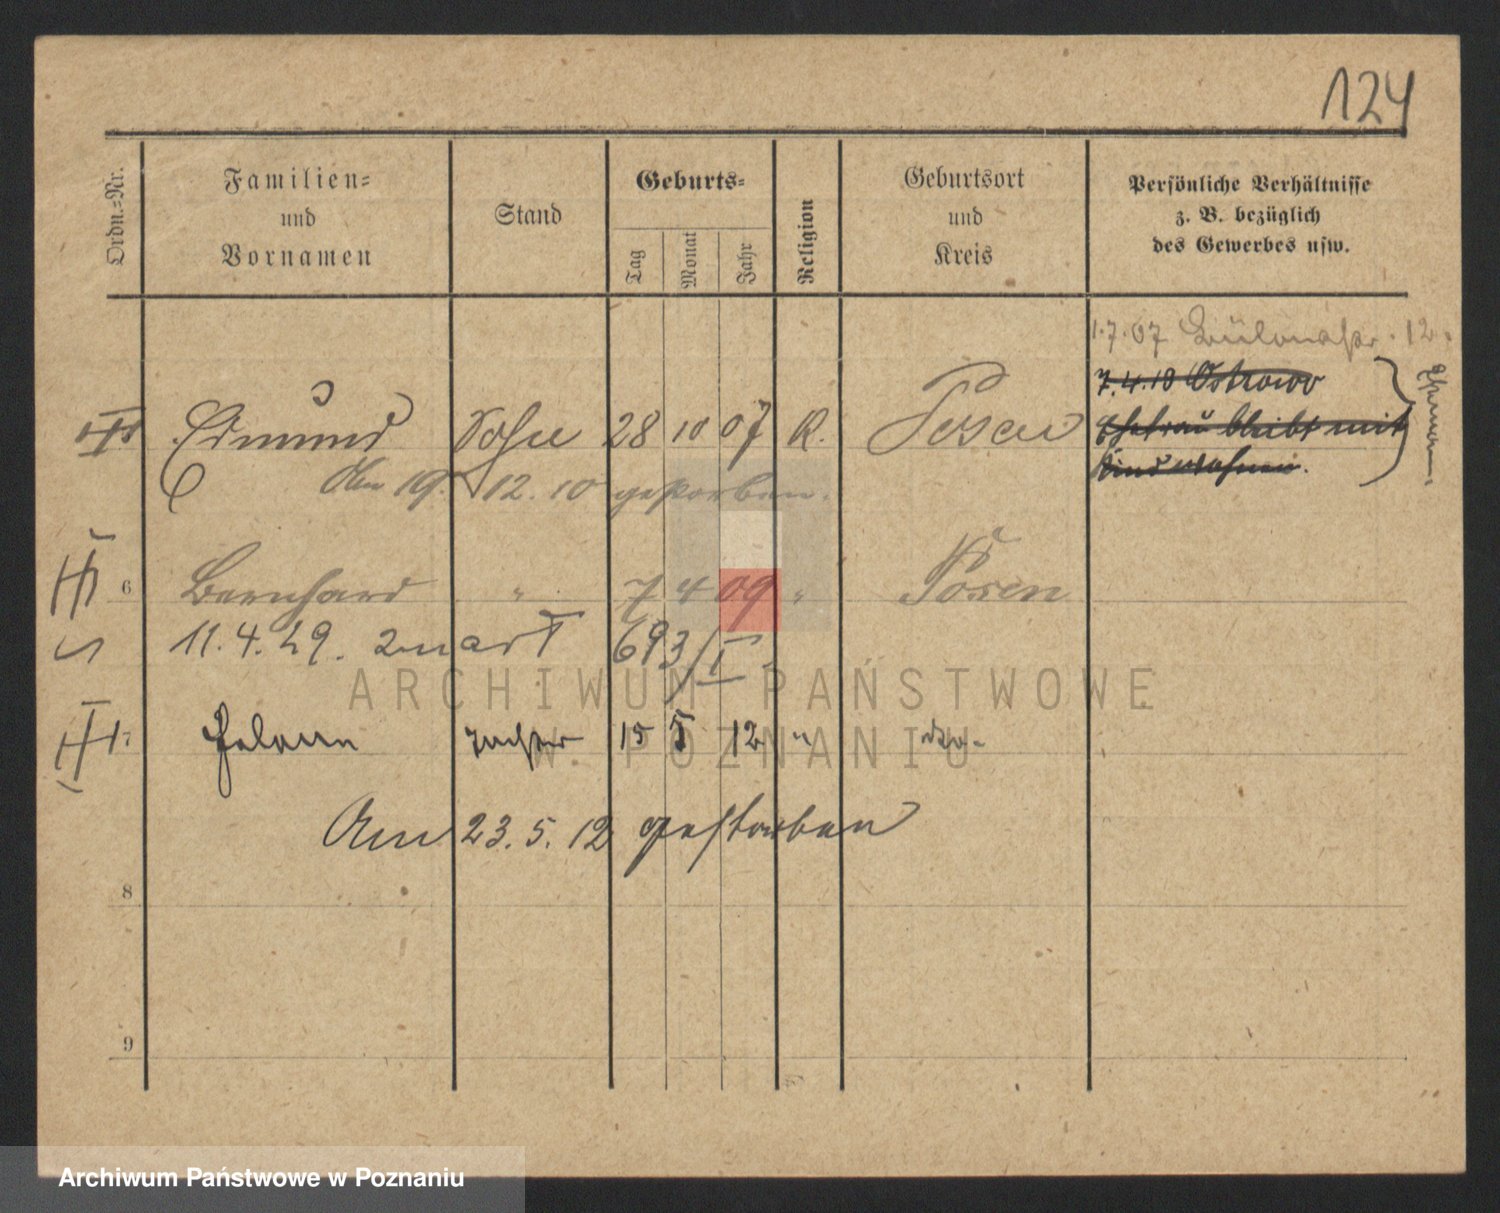 124
Ordn.-Nr.
Familien-
und
Vornamen
Stand
Geburts-
Tag
Monat
Jahr
Religion
Geburtsort
und
Kreis
Persönliche Verhältnisse
z. B. bezüglich
des Gewerbes usw.
1.7.07 12.
7.4.10 Ostrowo
Ehefrau bleibt mit
Kind wohnen.
Edmund Sohn 28 10 07 K. Posen
Am 19. 12. 10 gestorben.
6 Bernhard " 7 4 09 " Posen
11.4.29. zmarł 693/I
7 Tochter 15 5 12 " dto.
Am 23. 5. 12 gestorben
8
9
ARCHIWUM PAŃSTWOWE
W POZNANIU
Archiwum Państwowe w Poznaniu